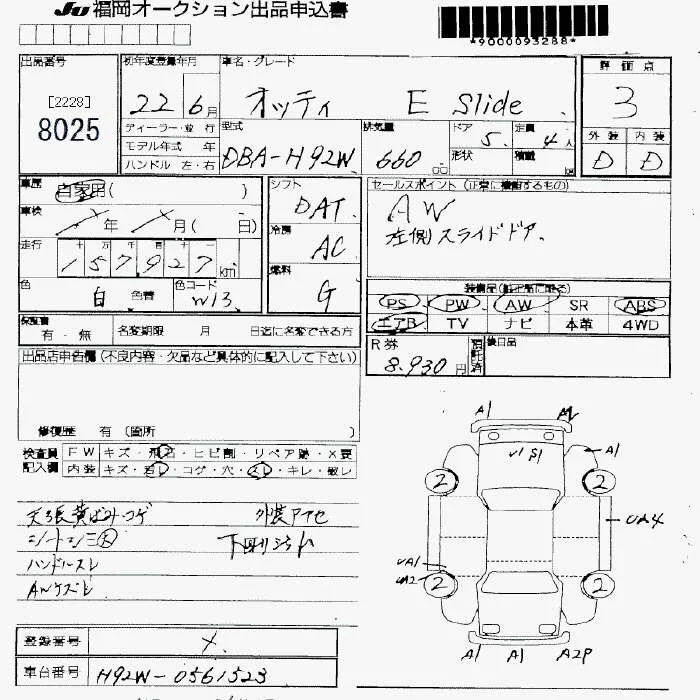 JU 福岡オークション出品申込書
*9000093288*
出品番号
[2228]
8025
初年度登録年月
22 6月
車名・グレード
オッティ E Slide
評価点
3
外装 内装
D D
ディーラー・並行
モデル年式 年
ハンドル 左・右
型式
DBA-H92W
排気量
660 cc
ドア 5.
形状
定員 4人
積載
車歴 自家用( )
車検 年 月( 日)
走行 十万 千百十
157927 km
色 白 色替
色コード W13
シフト
DAT
冷房
AC
燃料
G
セールスポイント(正常に機能するもの)
AW
左側スライドドア.
装備品(純正品に限る)
PS PW AW SR ABS
エアB TV ナビ 本革 4WD
保証書
有・無
名変期限 月 日迄に名変できる方
R券
8.930円
預託済
後日品
出品店申告欄(不良内容・欠品など具体的に記入して下さい)
修復歴 有〔箇所 〕
検査員
記入欄
FW キズ・飛石・ヒビ割・リペア跡・X要
内装 キズ・コゲ・穴・スレ・キレ・破レ
天張黄ばみ・コゲ 外装アセ
シートシミ大 下廻りサビ
ハンドルスレ
AWキズ
A1 A2
U1 S1 A1
2 2
UA4
UA1
UA2
2 2
A1 A1 A2P
登録番号
車台番号 H92W-0561523